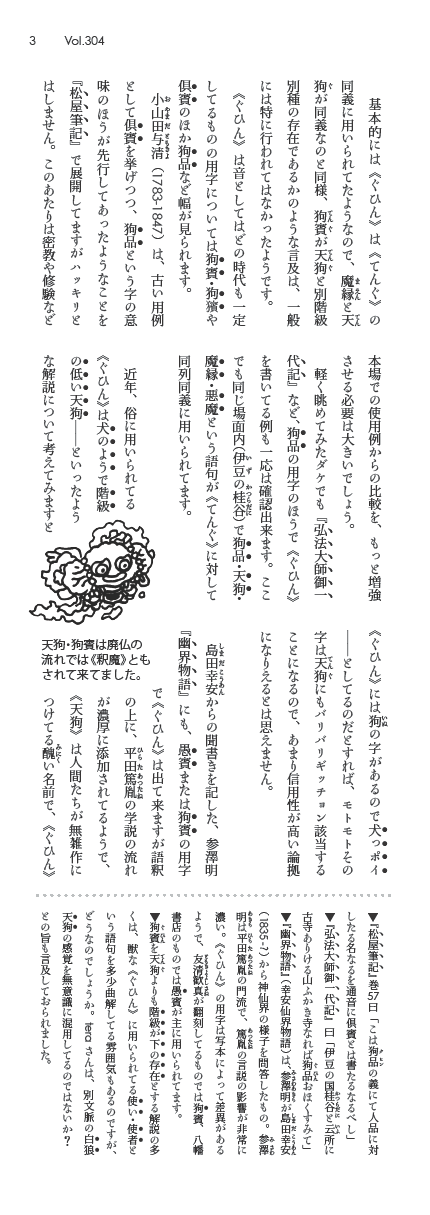 3 Vol.304
基本的には《ぐひん》は《てんぐ》の
同義に用いられてたようなので、魔縁と天
狗が同義なのと同様、狗賓が天狗と別階級
別種の存在であるかのような言及は、一般
には特に行われてはなかったようです。
《ぐひん》は音としてはどの時代も一定
してるものの用字については狗賓・狗獱や
倶賓のほか狗品など幅が見られます。
小山田与清（1783-1847）は、古い用例
として倶賓を挙げつつ、狗品という字の意
味のほうが先行してあったようなことを
『松屋筆記』で展開してますがハッキリと
はしません。このあたりは密教や修験など
本場での使用例からの比較を、もっと増強
させる必要は大きいでしょう。
軽く眺めてみたダケでも『弘法大師御一
代記』など、狗品の用字のほうで《ぐひん》
を書いてる例も一応は確認出来ます。ここ
でも同じ場面内（伊豆の桂谷）で狗品・天狗・
魔縁・悪魔という語句が《てんぐ》に対して
同列同義に用いられてます。
近年、俗に用いられてる
《ぐひん》は犬のようで階級
の低い天狗――といったよう
な解説について考えてみますと
《ぐひん》には狗の字があるので犬っポイ
――としてるのだとすれば、モトモトその
字は天狗にもバリバリギッチョン該当する
ことになるので、あまり信用性が高い論拠
になりえるとは思えません。
島田幸安からの聞書きを記した、参澤明
『幽界物語』にも、愚賓または狗賓の用字
で《ぐひん》は出て来ますが語釈
の上に、平田篤胤の学説の流れ
が濃厚に添加されてるようで、
《天狗》は人間たちが無雑作に
つけてる醜い名前で、《ぐひん》
天狗・狗賓は廃仏の
流れでは《釈魔》とも
されて来てました。
▼『松屋筆記』巻57曰「こは狗品の義にて人品に対
したる名なるを通音に倶賓とは書たるなるべし」
▼『弘法大師御一代記』曰「伊豆の国桂谷と云所に
古寺ありける山ふかき寺なれば狗品おほくすみて」
▼『幽界物語』（幸安仙界物語）は、参澤明が島田幸安
（1835-?）から神仙界の様子を問答したもの。参澤
明は平田篤胤の門流で、篤胤の言説の影響が非常に
濃い。《ぐひん》の用字は写本によって差異がある
ようで、友清歓真が翻刻してるものでは狗賓、八幡
書店のものでは愚賓が主に用いられてます。
▼狗賓を天狗よりも階級が下の存在とする解説の多
くは、獣な《ぐひん》に用いられてる使い・使者と
いう語句を多少曲解してる雰囲気もあるのですが、
どうなのでしょうか。teraさんは、別文脈の白狼
天狗の感覚を無意識に混用してるのではないか？
との旨も言及しておられました。